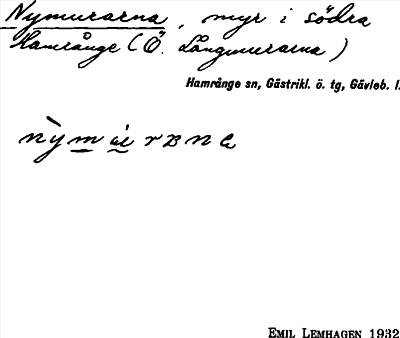 Nymurarna, myr i södra
Hamrånge (Ö. Långmurarna)
Hamrånge sn, Gästrikl. ö. tg, Gävleb. l.
EMIL LEMHAGEN 1932